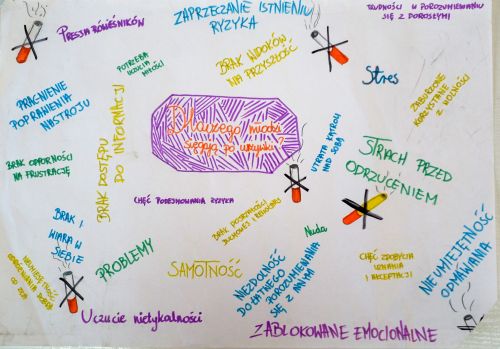 Presja rówieśników
ZAPRZECZANIE ISTNIENIU
RYZYKA
TRUDNOŚCI W POROZUMIEWANIU
SIĘ Z DOROSŁYMI
POTRZEBA
UCZUCIA
MIŁOŚCI
BRAK WIDOKÓW
NA PRZYSZŁOŚĆ
Stres
ZABURZONE
KORZYSTANIE
Z WOLNOŚCI
PRAGNIENIE
POPRAWIENIA
NASTROJU
BRAK DOSTĘPU
DO INFORMACJI
Dlaczego młodzi
sięgają po używki?
UTRATA KONTROLI
NAD SOBĄ
STRACH PRZED
ODRZUCENIEM
BRAK ODPORNOŚCI
NA FRUSTRACJĘ
CHĘĆ PODEJMOWANIA RYZYKA
BRAK
WIARA W
SIEBIE
PROBLEMY
SAMOTNOŚĆ
BRAK
DUCHOWEJ I
Nuda
NIEZDOLNOŚĆ
DO ŁATWEGO
POROZUMIEWANIA
SIĘ Z INNYMI
CHĘĆ ZDOBYCIA
UZNANIA
I AKCEPTACJI
NIEUMIEJĘTNOŚĆ
ODMAWIANIA
NIEUMIEJĘTNOŚĆ
ODRÓŻNIANIA DOBRA
OD ZŁA
Uczucie nietykalności
ZABLOKOWANE EMOCJONALNE